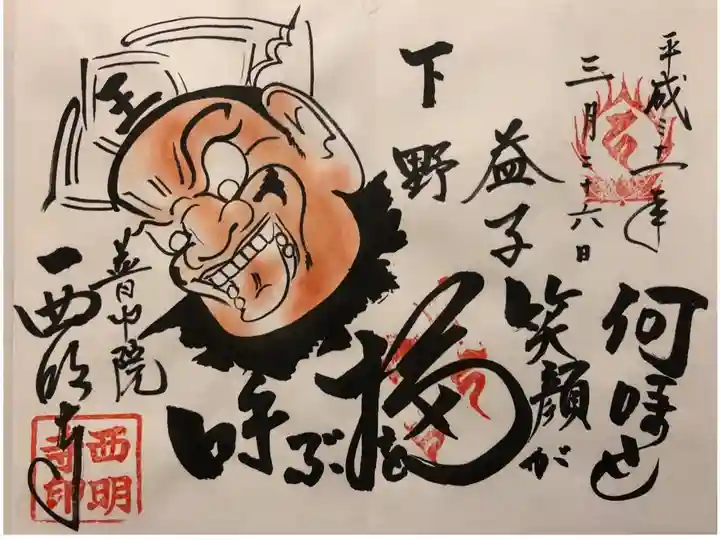 平成三十一年
三月二十六日
何時も
笑顔が
福を
呼ぶ
益子
下野
王
普門院
西明寺
西明寺印